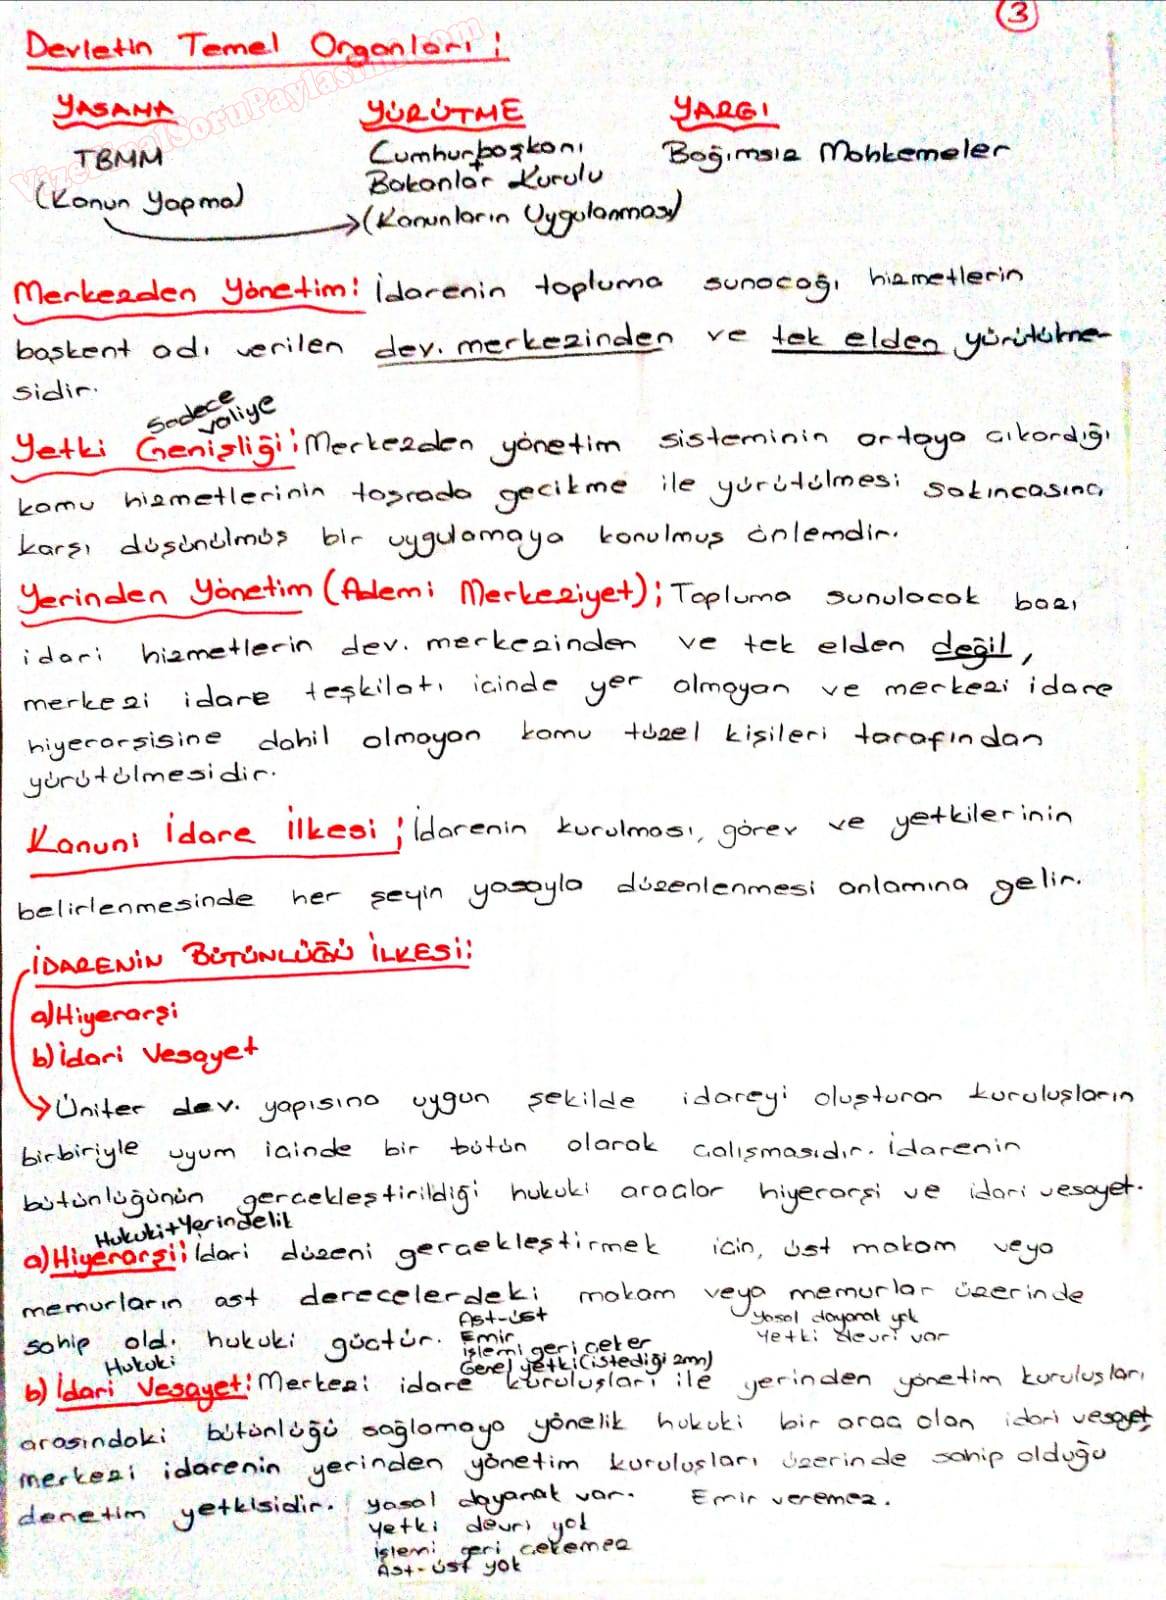 3
Devletin Temel Organları;
YASAMA YÜRÜTME YARGI
TBMM Cumhurbaşkanı Bağımsız Mahkemeler
+
(Kanun Yapma) Bakanlar Kurulu
(Kanunların Uygulanması)
Merkezden Yönetim: İdarenin topluma sunacağı hizmetlerin
başkent adı verilen dev. merkezinden ve tek elden yürütülme-
sidir.
Sadece
valiye
Yetki Genişliği; Merkezden yönetim sisteminin ortaya çıkardığı
kamu hizmetlerinin taşrada gecikme ile yürütülmesi sakıncasına
karşı düşünülmüş bir uygulamaya konulmuş önlemdir.
Yerinden Yönetim (Ademi Merkeziyet); Topluma sunulacak bazı
idari hizmetlerin dev. merkezinden ve tek elden değil,
merkezi idare teşkilatı içinde yer almayan ve merkezi idare
hiyerarşisine dahil olmayan kamu tüzel kişileri tarafından
yürütülmesidir.
Kanuni İdare İlkesi; İdarenin kurulması, görev ve yetkilerinin
belirlenmesinde her şeyin yasayla düzenlenmesi anlamına gelir.
İDARENİN BÜTÜNLÜĞÜ İLKESİ:
a) Hiyerarşi
b) İdari Vesayet
Üniter dev. yapısına uygun şekilde idareyi oluşturan kuruluşların
birbiriyle uyum içinde bir bütün olarak çalışmasıdır. İdarenin
bütünlüğünün gerçekleştirildiği hukuki araçlar hiyerarşi ve idari vesayet.
Hukuki+Yerindelik
a) Hiyerarşi; İdari düzeni gerçekleştirmek için, üst makam veya
memurların ast derecelerdeki makam veya memurlar üzerinde
sahip old. hukuki güçtür.
Ast-üst
Emir
işlemi geri çeker
Genel yetki (istediği zmn)
Yasal dayanak yok
Yetki devri var
Hukuki
b) İdari Vesayet: Merkezi idare kuruluşları ile yerinden yönetim kuruluşları
arasındaki bütünlüğü sağlamaya yönelik hukuki bir araç olan idari vesayet,
merkezi idarenin yerinden yönetim kuruluşları üzerinde sahip olduğu
denetim yetkisidir. Yasal dayanak var. Emir veremez.
Yetki devri yok
işlemi geri çekemez
Ast-üst yok
VizeFinalSoruPaylasimi.com